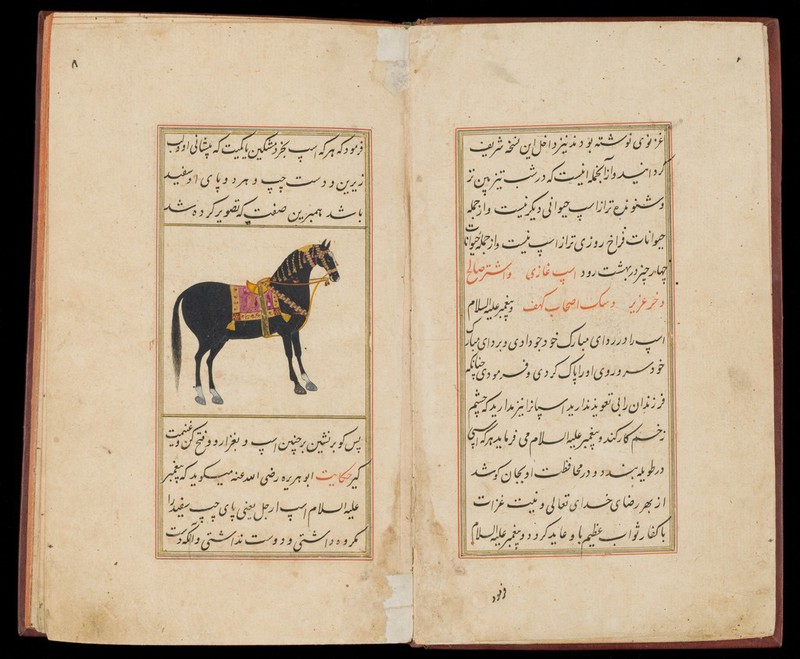 غزنوی نوشته بودند نیز داخل این نسخه شریف
کردانید و از آنجمله اینست که در شب تیزبین تر
و شنونده تر از اسپ حیوانی دیگر نیست و از جمله
حیوانات فراخ روزی تر از اسپ نیست و از جمله حیوانات
چهار چیز در بهشت رود اسپ غازی و اشتر صالح
و خر عزیر و سک اصحاب کهف و پیغمبر علیه السلام
اسپ را در ردای مبارک خود جو دادی و بردای مبارک
خود سر و روی او را پاک کردی و فرمودی چنانکه
فرزندان را بی تعویذ ندارید اسپانرا نیز مدارید که چشم
زخم کار کند و پیغمبر علیه السلام می فرماید هر که اسپی
در طویله بندد و در محافظت او بجان کوشد
از بهر رضای خدای تعالی و نیت غزات
با کفار ثواب عظیم باو عاید کردد و پیغمبر علیه السلام
فرمود
۸
فرمود که هر که اسپ بخرد مشکین یا کمیت که پیشانی او و لب
زیرین و دست چپ و هر دو پای او سفید
باشد همبرین صفت که تصویر کرده شد
پس کو برنشین بر چنین اسپ و بغزا رو و فتح کن و غنیمت
کیر حکایت ابو هریره رضی الله عنه میکوید که پیغمبر
علیه السلام اسپ ارجل یعنی پای چپ سفید را
مکروه داشتی و دوست نداشتی و آنکه دست